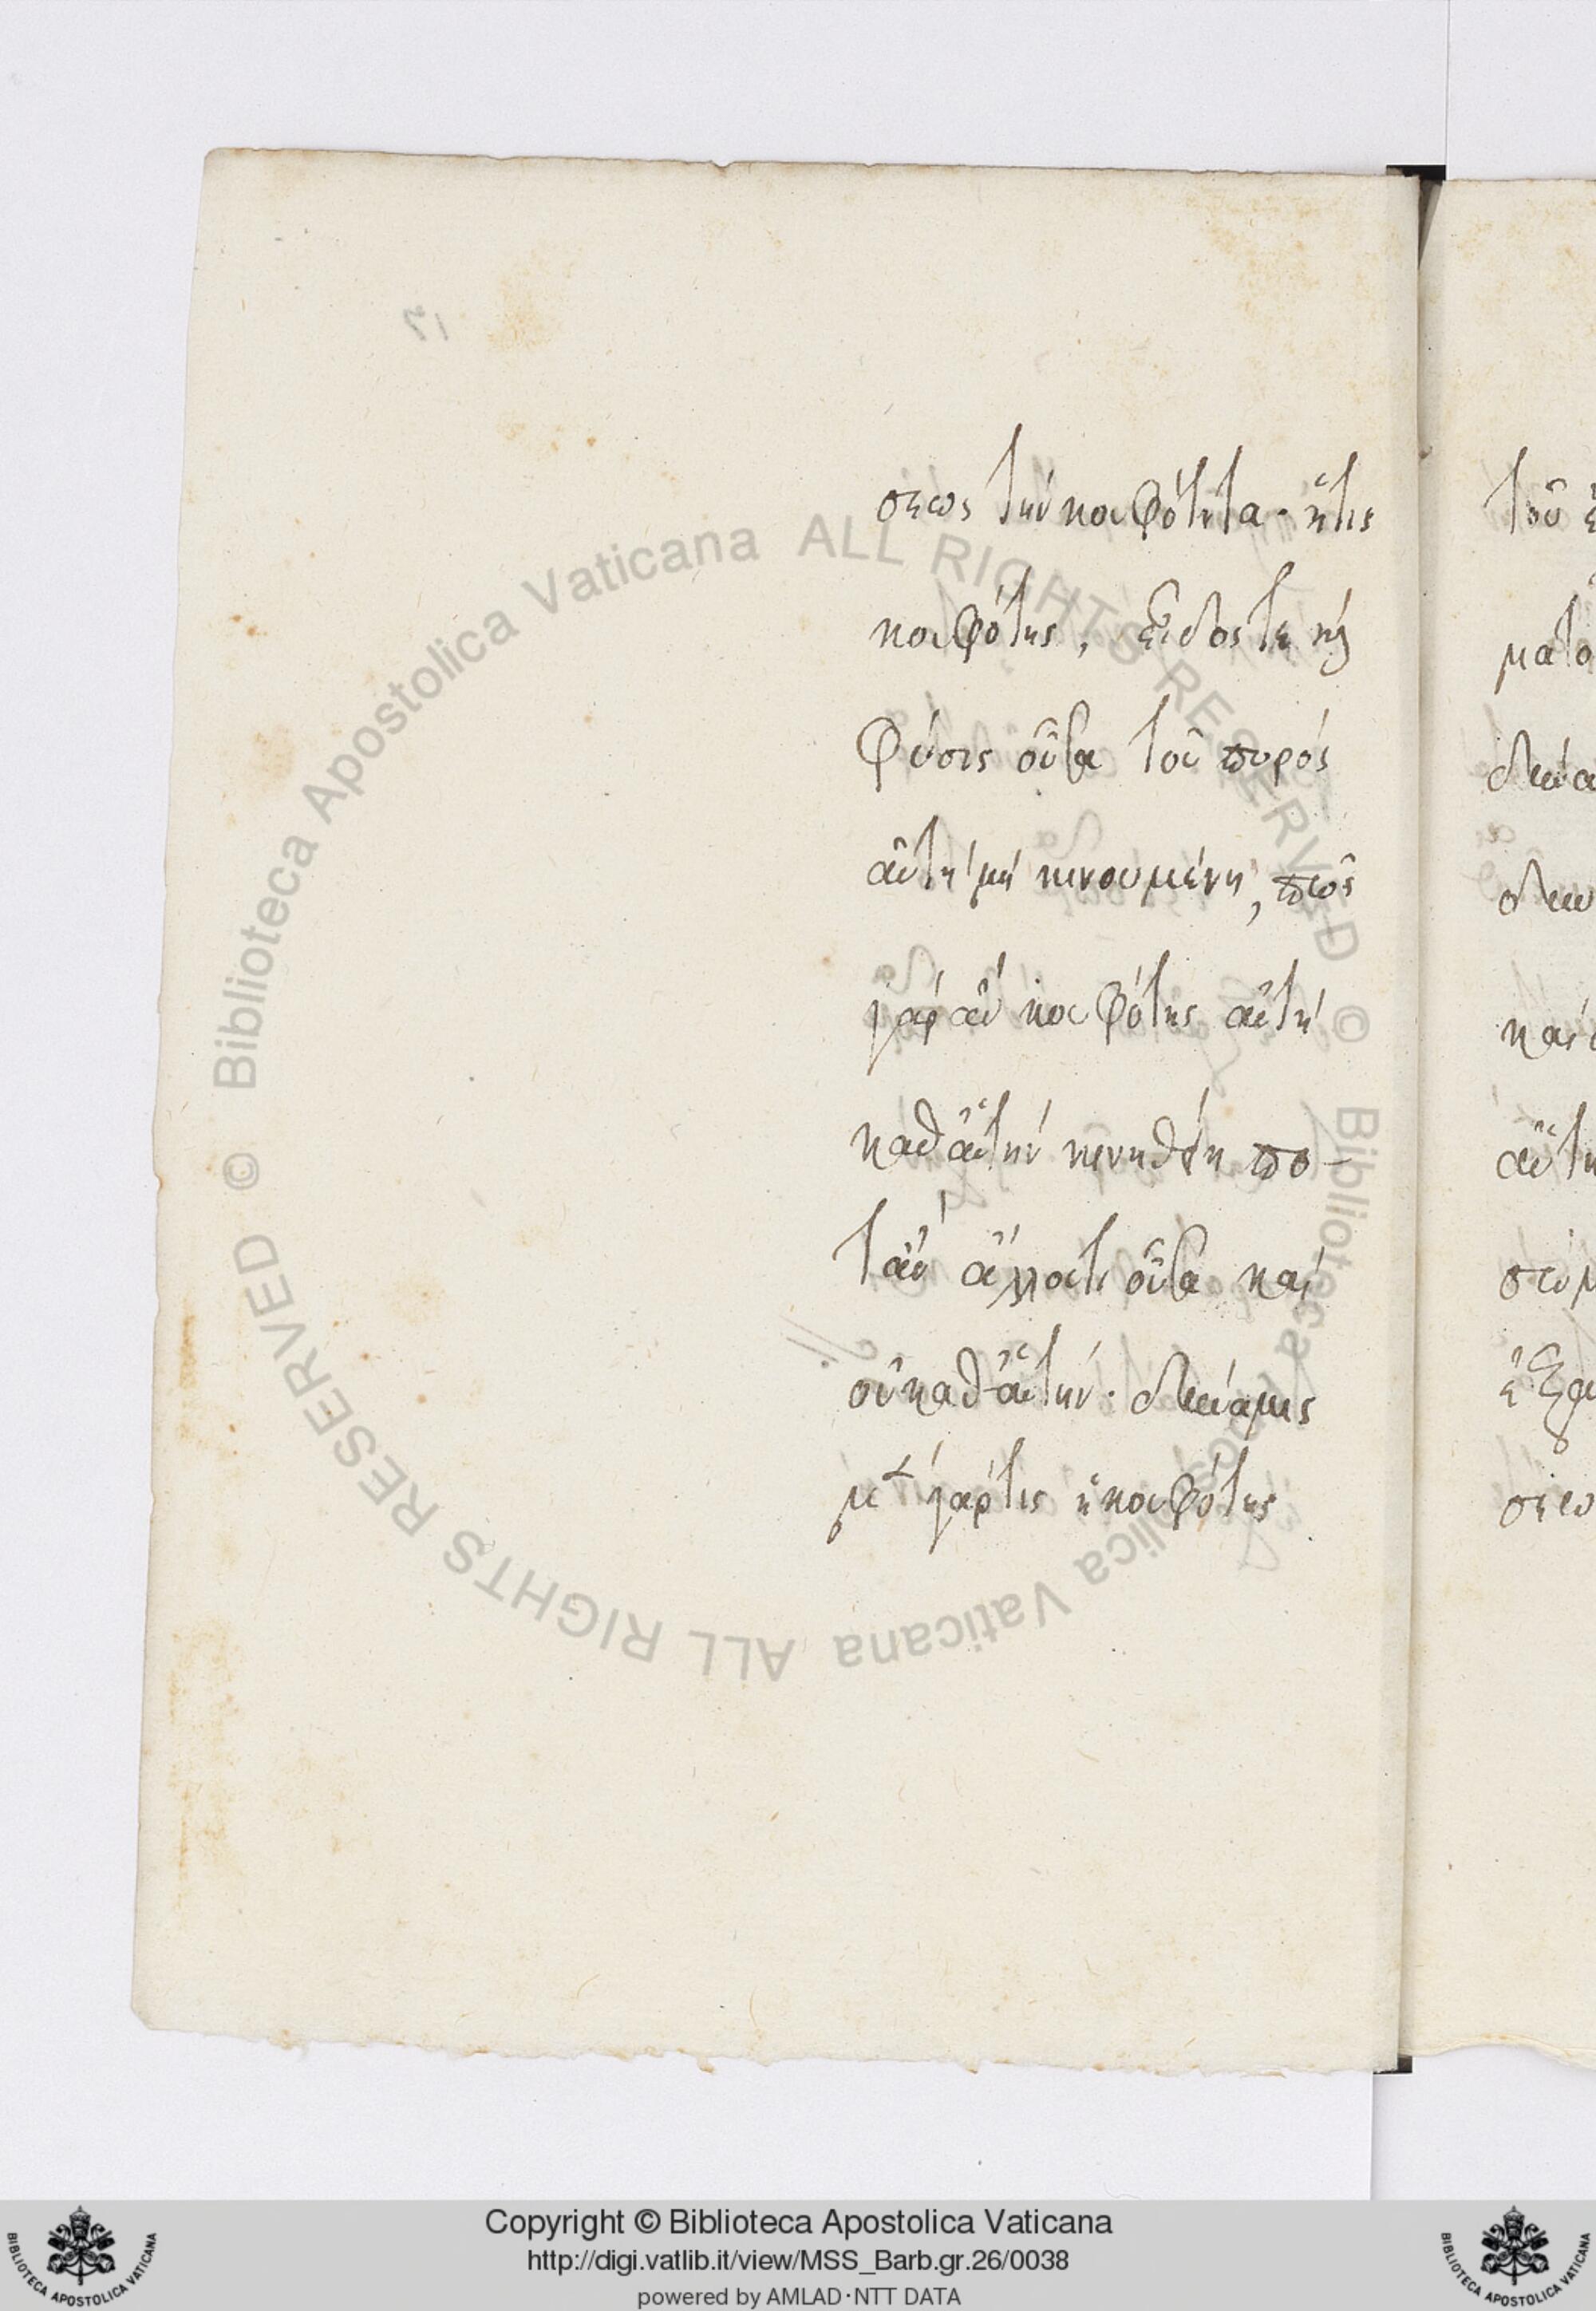 17
σεως τὴν κουφότητα· ἥτις
κουφότης, εἶδός τε καὶ
φύσις οὖσα τοῦ πυρός
αὐτὴ μὴ κινουμένη, πῶς
γὰρ ἂν κουφότης αὐτὴ
καθ᾽ αὑτὴν κινηθείη πο-
τ᾽ ἂν ἄλλό τι οὖσα καὶ
οὐ καθ᾽ αὑτήν· δύναμις
μὲν γάρ τις ἡ κουφότης
τοῦ
ματο
δυνα
δυν
και
αὐτη
σωμ
ἐξα
σεω
Biblioteca Apostolica Vaticana ALL RIGHTS RESERVED © Biblioteca Apostolica Vaticana ALL RIGHTS RESERVED ©
Copyright © Biblioteca Apostolica Vaticana
http://digi.vatlib.it/view/MSS_Barb.gr.26/0038
powered by AMLAD·NTT DATA
BIBLIOTECA APOSTOLICA VATICANA
BIBLIOTECA APOSTOLICA VATICANA